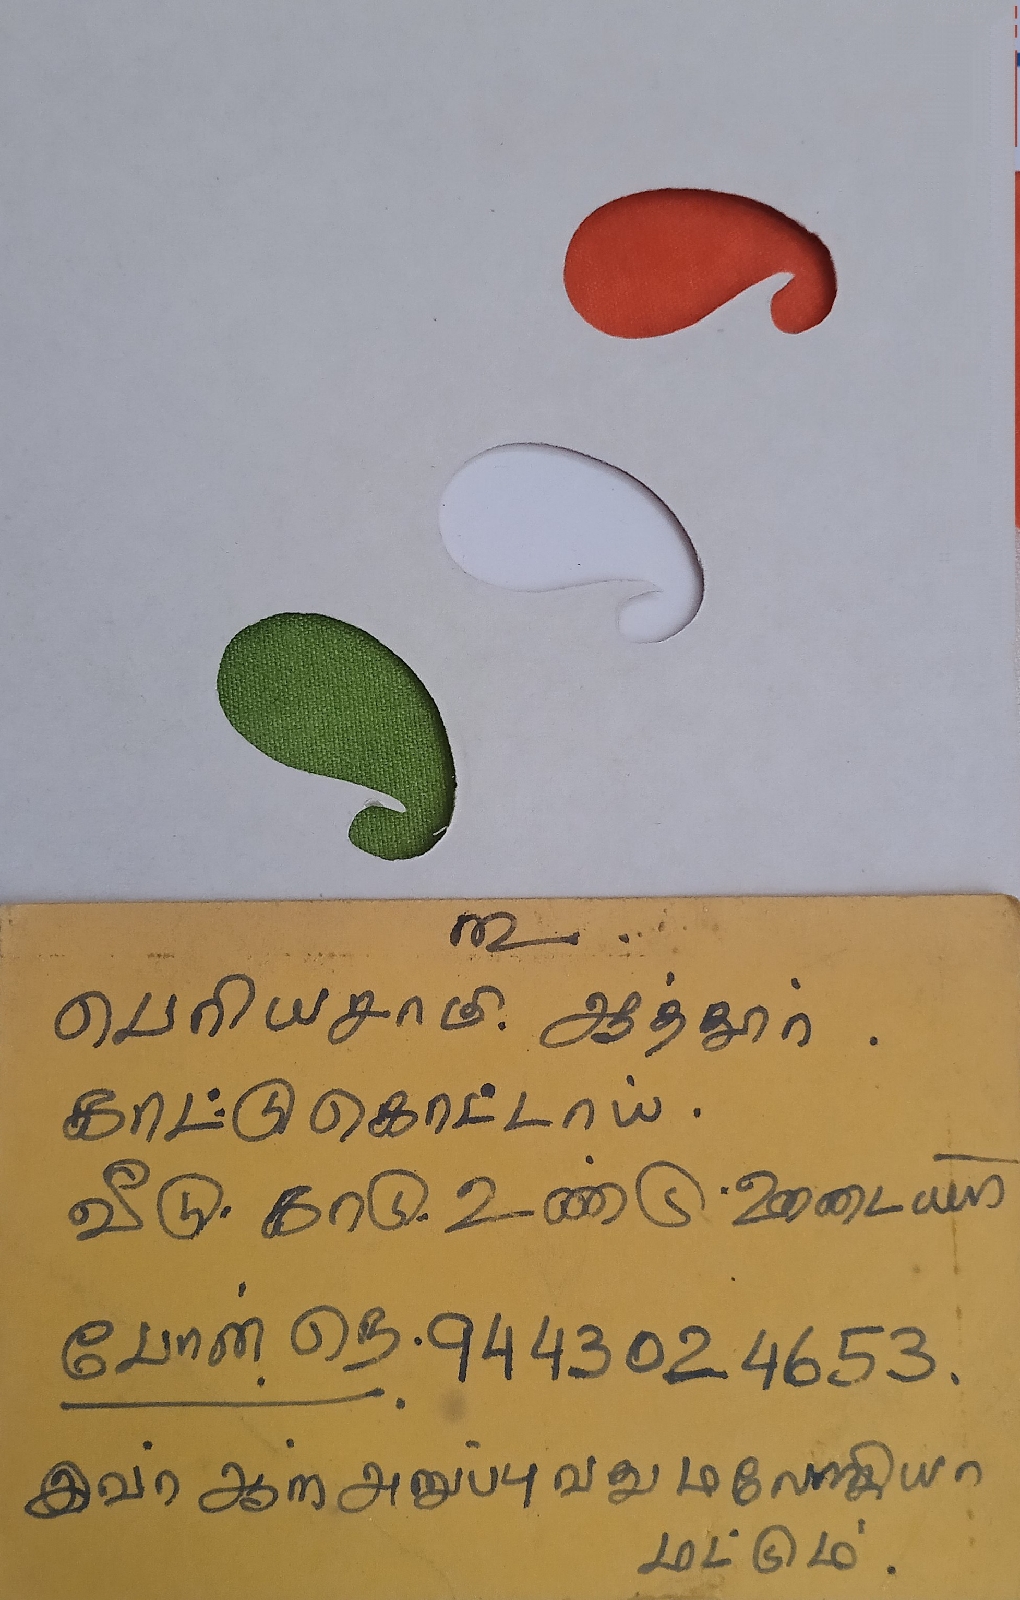 உ
பெரியசாமி. ஆத்தூர்.
காட்டுகொட்டாய்.
வீடு. காடு. உண்டு.
போன் நெ. 9443024653.
இவர் ஆள் அனுப்புவது மலேசியா
மட்டும்.